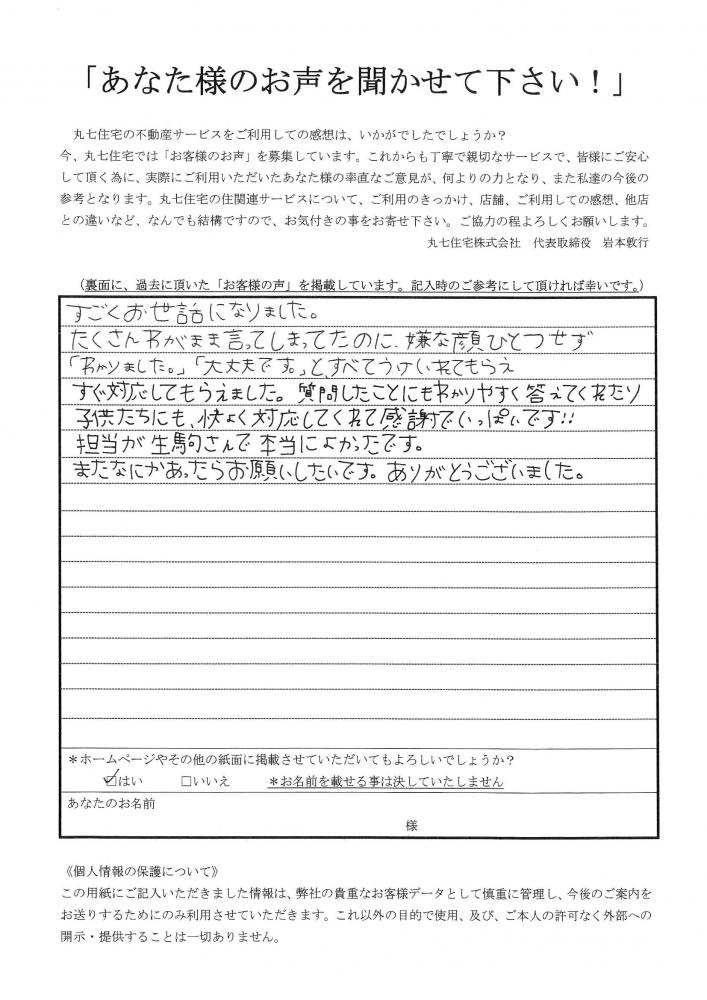 「あなた様のお声を聞かせて下さい！」
丸七住宅の不動産サービスをご利用しての感想は、いかがでしたでしょうか？
今、丸七住宅では「お客様のお声」を募集しています。これからも丁寧で親切なサービスで、皆様にご安心
して頂く為に、実際にご利用いただいたあなた様の率直なご意見が、何よりの力となり、また私達の今後の
参考となります。丸七住宅の住関連サービスについて、ご利用のきっかけ、店舗、ご利用しての感想、他店
との違いなど、なんでも結構ですので、お気付きの事をお寄せ下さい。ご協力の程よろしくお願いします。
丸七住宅株式会社　代表取締役　岩本敦行
（裏面に、過去に頂いた「お客様の声」を掲載しています。記入時のご参考にして頂ければ幸いです。）
すごくお世話になりました。
たくさんわがまま言ってしまってたのに、嫌な顔ひとつせず
「わかりました。」「大丈夫です。」と、すべてうけいれてもらえ
すぐ対応してもらえました。質問したことにもわかりやすく答えてくれたり
子供たちにも、快よく対応してくれて感謝でいっぱいです!!
担当が生駒さんで本当によかったです。
またなにかあったらお願いしたいです。ありがとうございました。
＊ホームページやその他の紙面に掲載させていただいてもよろしいでしょうか？
☑はい　□いいえ　＊お名前を載せる事は決していたしません
あなたのお名前
様
《個人情報の保護について》
この用紙にご記入いただきました情報は、弊社の貴重なお客様データとして慎重に管理し、今後のご案内を
お送りするためにのみ利用させていただきます。これ以外の目的で使用、及び、ご本人の許可なく外部への
開示・提供することは一切ありません。